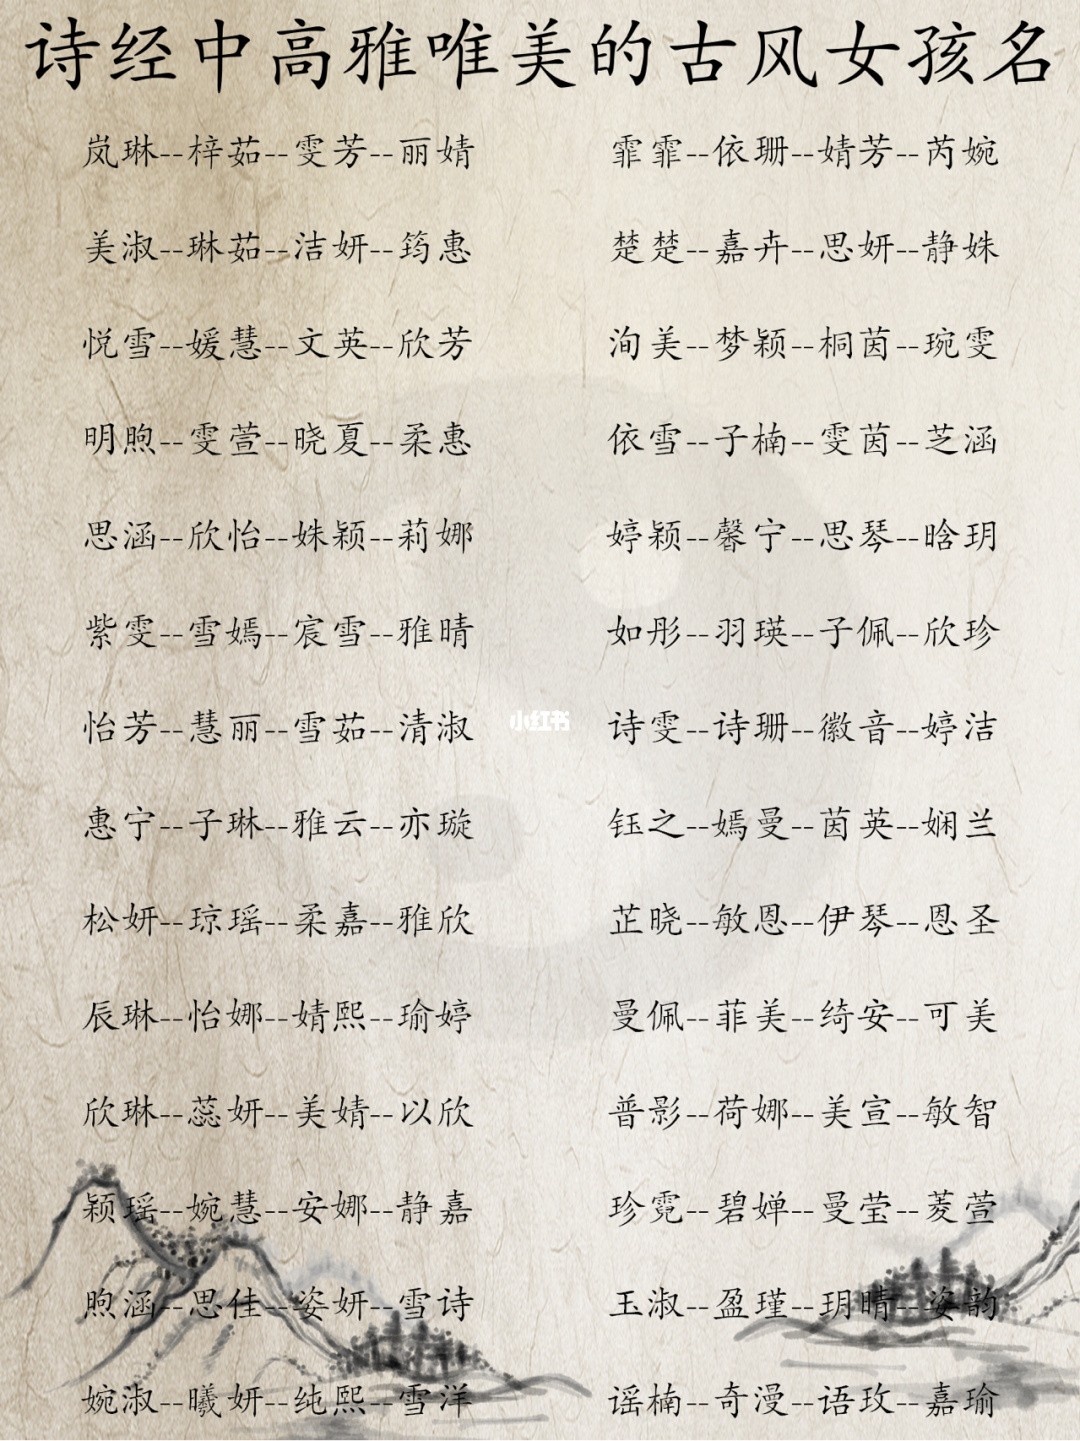 诗经中高雅唯美的古风女孩名
岚琳--梓茹--雯芳--丽婧
霏霏--依珊--婧芳--芮婉
美淑--琳茹--洁妍--筠惠
楚楚--嘉卉--思妍--静姝
悦雪--媛慧--文英--欣芳
洵美--梦颖--桐茵--琬雯
明煦--雯萱--晓夏--柔惠
依雪--子楠--雯茵--芝涵
思涵--欣怡--姝颖--莉娜
婷颖--馨宁--思琴--晗玥
紫雯--雪嫣--宸雪--雅晴
如彤--羽瑛--子佩--欣珍
怡芳--慧丽--雪茹--清淑
小红书
诗雯--诗珊--徽音--婷洁
惠宁--子琳--雅云--亦璇
钰之--嫣曼--茵英--娴兰
松妍--琼瑶--柔嘉--雅欣
芷晓--敏恩--伊琴--恩圣
辰琳--怡娜--婧熙--瑜婷
曼佩--菲美--绮安--可美
欣琳--蕊妍--美婧--以欣
普影--荷娜--美宣--敏智
颖瑶--婉慧--安娜--静嘉
珍霓--碧婵--曼莹--菱萱
煦涵--思佳--姿妍--雪诗
玉淑--盈瑾--玥晴--姿韵
婉淑--曦妍--纯熙--雪洋
谣楠--奇漫--语玫--嘉瑜